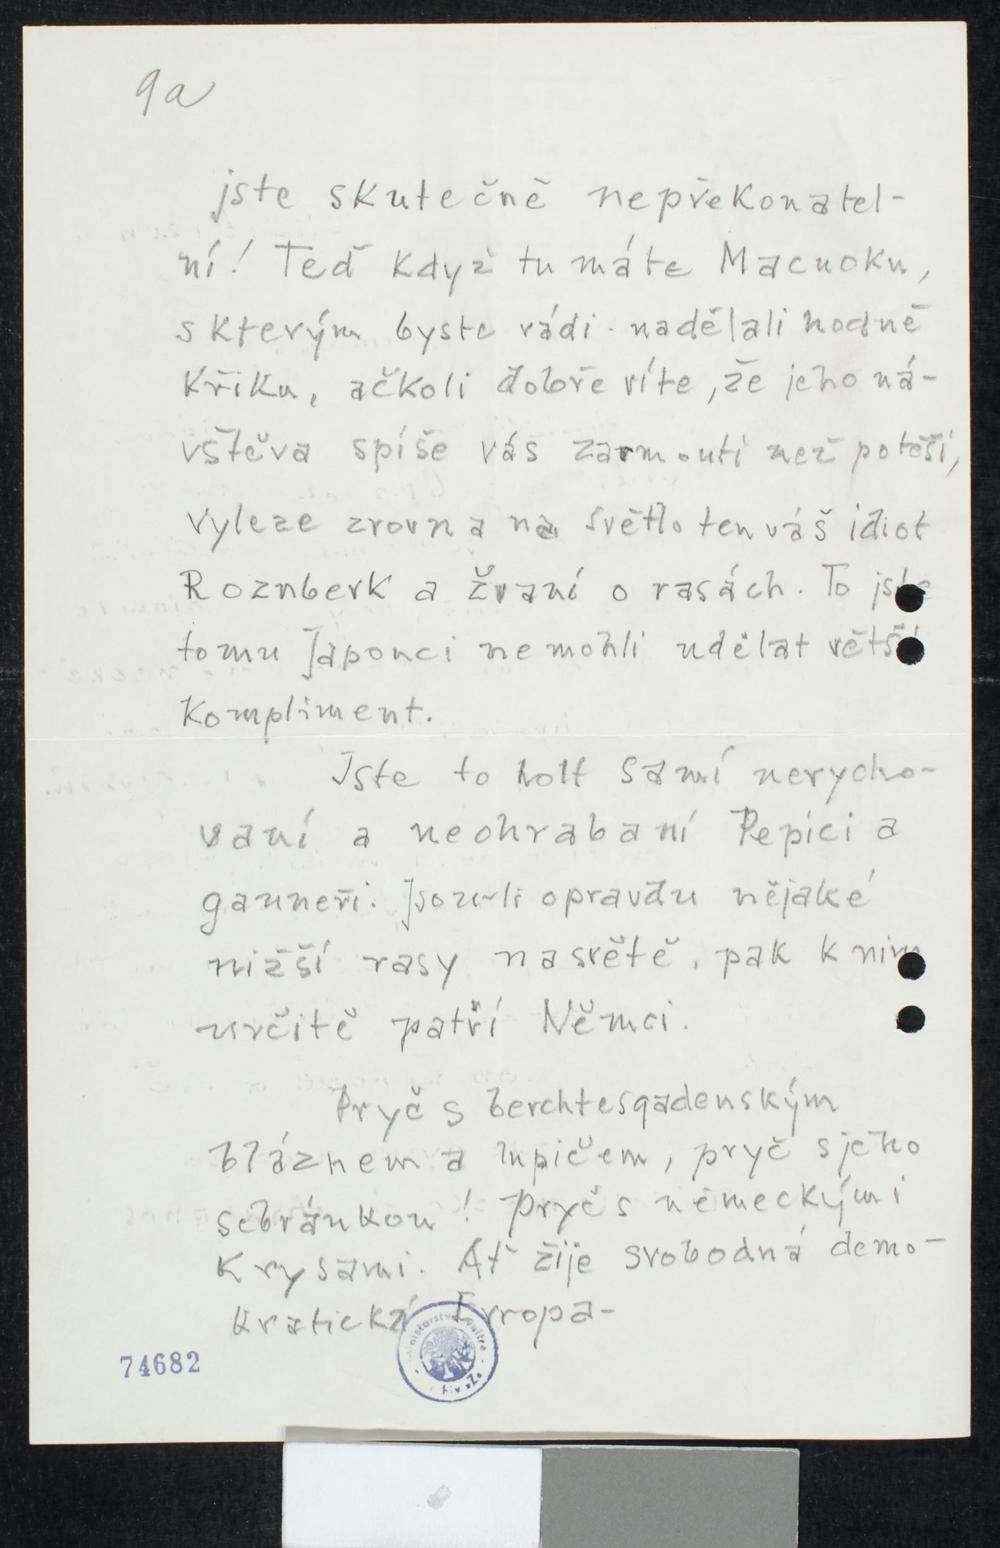 9a
jste skutečně nepřekonatel-
ní! Teď když tu máte Macuoku,
s kterým byste rádi nadělali hodně
křiku, ačkoli dobře víte, že jeho ná-
vštěva spíše vás zarmoutí než potěší,
vyleze zrovna na světlo ten váš idiot
Roznberk a žvaní o rasách. To jste
tomu Japonci nemohli udělat větší
kompliment.
Jste to holt samí nevycho-
vaní a neohrabaní Pepíci a
gauneři. Jsou-li opravdu nějaké
nižší rasy na světě, pak k nim
určitě patří Němci.
Pryč s berchtesgadenským
bláznem a lupičem, pryč s jeho
sebránkou! Pryč s německými
krysami. Ať žije svobodná demo-
kratická Evropa-
74682